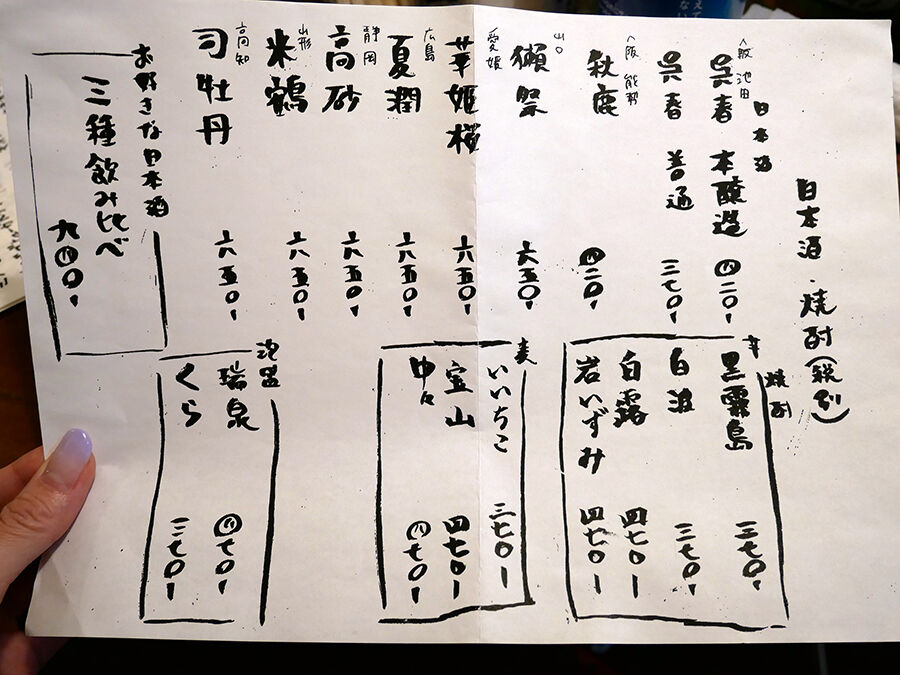 日本酒・焼酎(税別)
日本酒
大阪 池田
呉春 本醸造 四二〇-
呉春 普通 三七〇-
大阪 能勢
秋鹿 四二〇-
山口
獺祭 六五〇-
愛媛
華姫桜 六五〇-
広島
夏潤 六五〇-
静岡
高砂 六五〇-
山形
米鶴 六五〇-
高知
司牡丹 六五〇-
お好きな日本酒
三種飲み比べ
九四〇-
焼酎
芋
黒霧島 三七〇-
白波 三七〇-
白露 四七〇-
岩いずみ 四七〇-
麦
いいちこ 三七〇-
宝山 四七〇-
中々 四七〇-
泡盛
瑞泉 四七〇-
くら 三七〇-